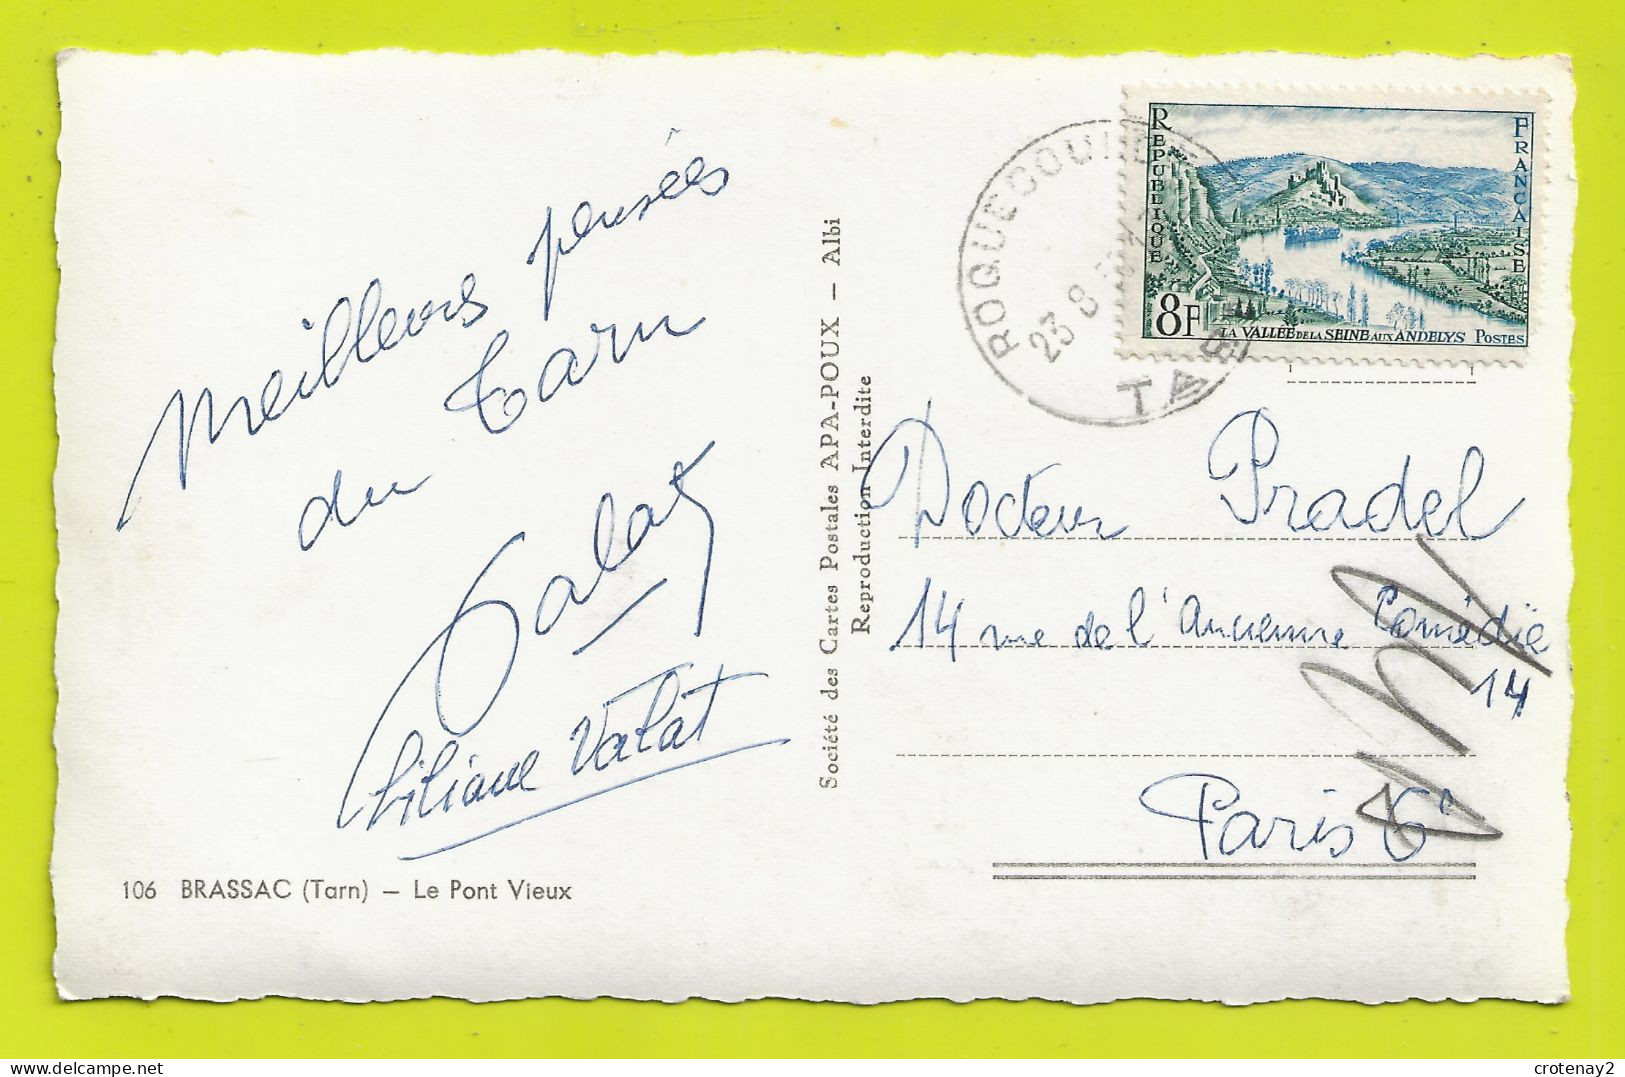 Meilleurs pensées
du Tarn
Valat
Liliane Valat
106 BRASSAC (Tarn) — Le Pont Vieux
Société des Cartes Postales APA-POUX — Albi
Reproduction Interdite
ROQUECOURBE
23 8
TARN
REPUBLIQUE FRANCAISE
8F
LA VALLÉE DE LA SEINE AUX ANDELYS POSTES
Docteur Pradel
14 rue de l'Ancienne Comédie
14
Paris 6e
crotenay2